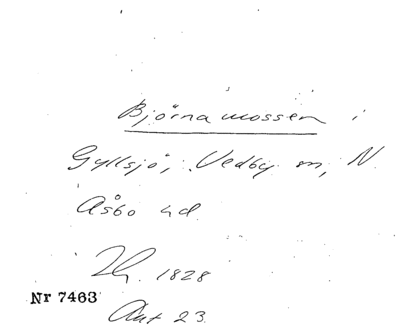 Björnamossen i
Gyllsjö, Vedby sn, N.
Åsbo hd.
1828
Nr 7463
Akt 23.